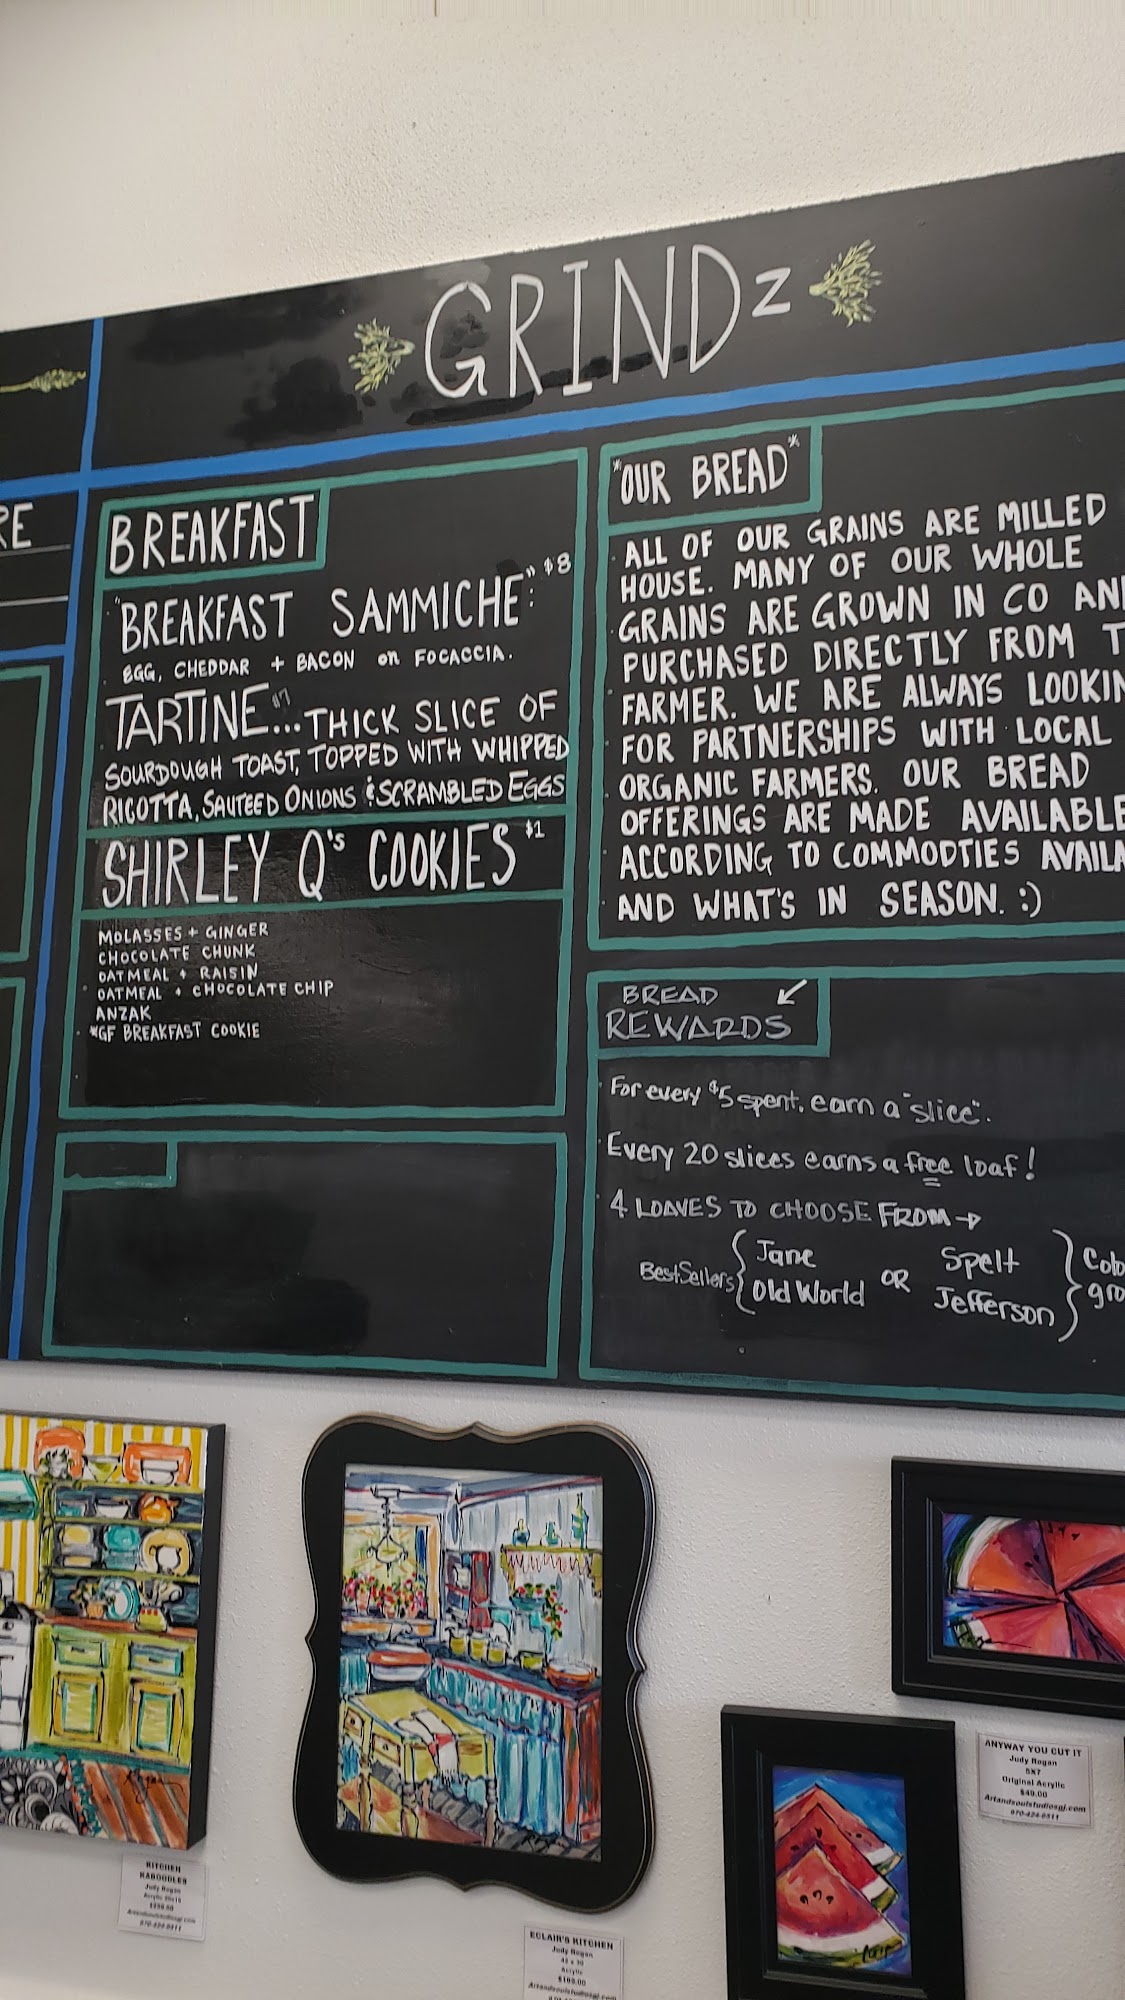 GRINDz
RE
BREAKFAST
"BREAKFAST SAMMICHE": $8
EGG, CHEDDAR + BACON on FOCACCIA.
TARTINE $7...THICK SLICE OF
SOURDOUGH TOAST, TOPPED WITH WHIPPED
RICOTTA, SAUTEED ONIONS & SCRAMBLED EGGS
SHIRLEY Q's COOKIES $1
MOLASSES + GINGER
CHOCOLATE CHUNK
OATMEAL + RAISIN
OATMEAL + CHOCOLATE CHIP
ANZAK
*GF BREAKFAST COOKIE
*OUR BREAD*
ALL OF OUR GRAINS ARE MILLED
HOUSE. MANY OF OUR WHOLE
GRAINS ARE GROWN IN CO AN
PURCHASED DIRECTLY FROM T
FARMER. WE ARE ALWAYS LOOKIN
FOR PARTNERSHIPS WITH LOCAL
ORGANIC FARMERS. OUR BREAD
OFFERINGS ARE MADE AVAILABLE
ACCORDING TO COMMODTIES AVAILA
AND WHAT'S IN SEASON. :)
BREAD
REWARDS
For every $5 spent, earn a "slice".
Every 20 slices earns a free loaf!
4 LOAVES TO CHOOSE FROM →
BestSellers { Jane Old World OR Spelt Jefferson } Colo gro
KITCHEN
KABOODLES
Judy Rogan
Artandsoulstudiosgj.com
970-424-0511
ECLAIR'S KITCHEN
Judy Rogan
Acrylic
Artandsoulstudiosgj.com
ANYWAY YOU CUT IT
Judy Rogan
5X7
Original Acrylic
$49.00
Artandsoulstudiosgj.com
970-424-0511